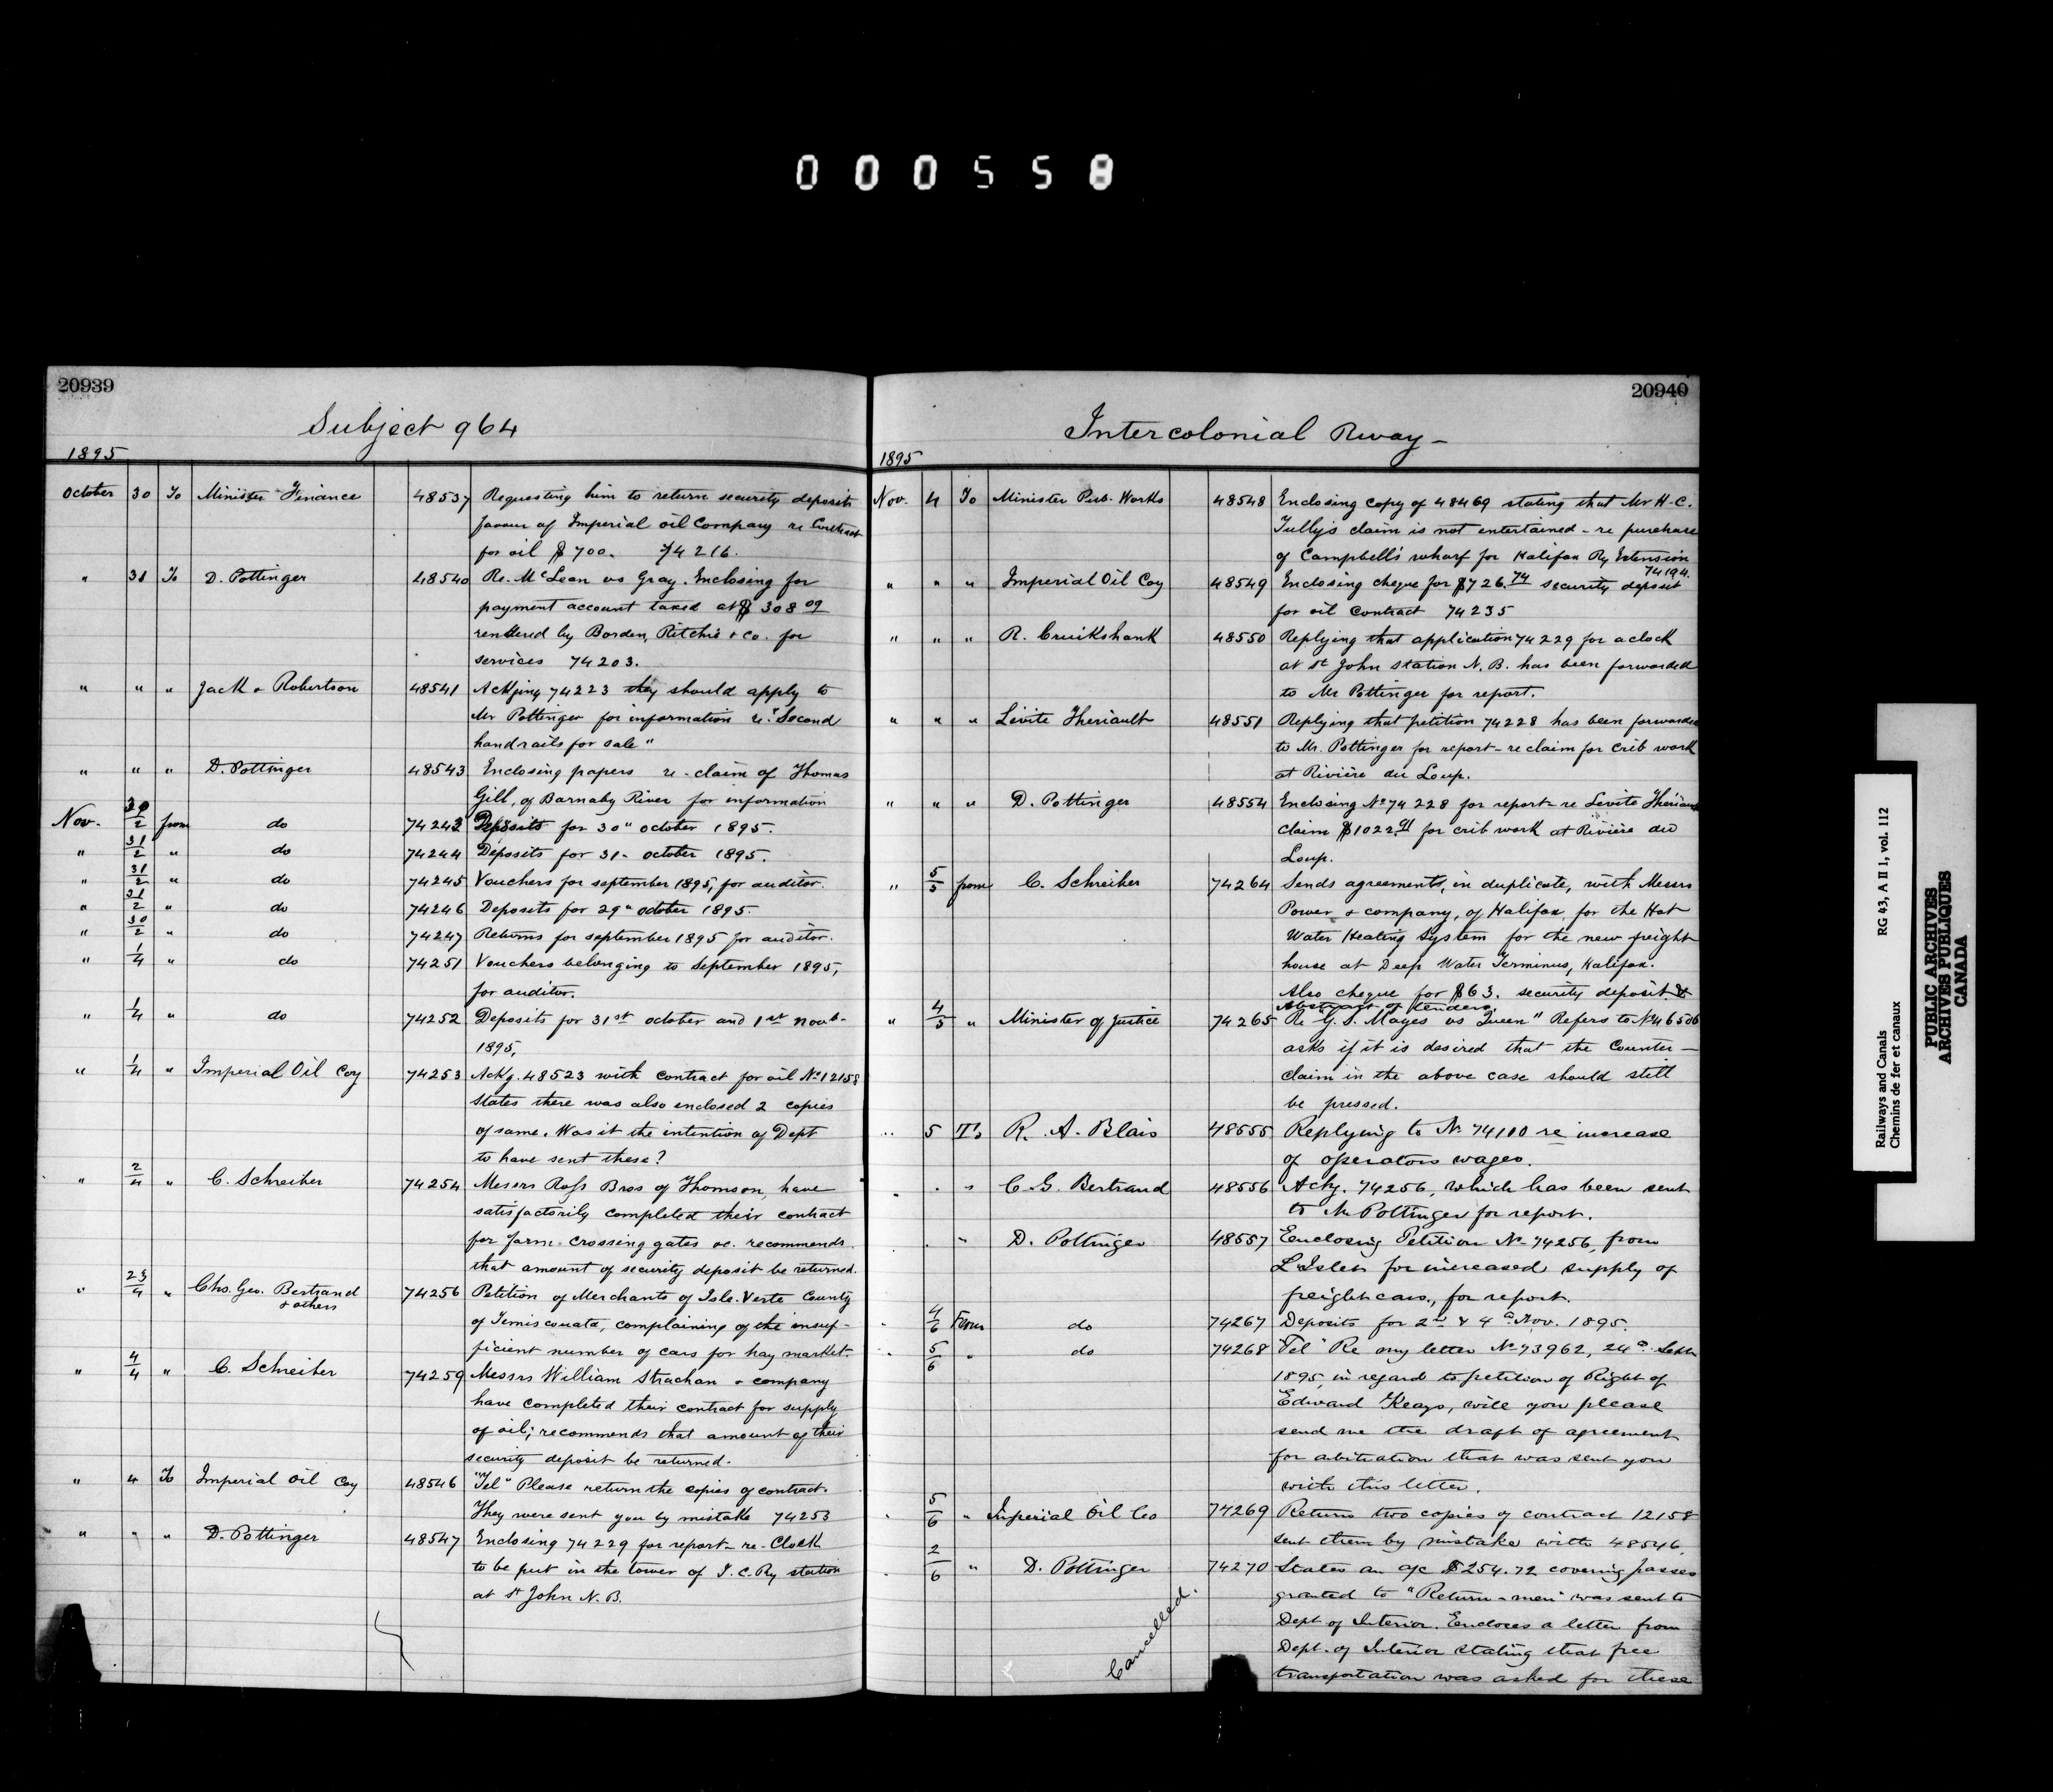 000558
20939
Subject 964
1895
October 30 To Minister Finance 48537 Requesting him to return security deposit
favour of Imperial Oil Company re Contract
for oil $700. 74216.
" 31 To D. Pottinger 48540 Re. McLean vs Gray. Enclosing for
payment account taxed at $308 09
rendered by Borden, Ritchie & Co. for
services 74203.
" " " Jack & Robertson 48541 Ackging 74223 they should apply to
Mr Pottinger for information re "Second
hand rails for sale"
" " " D. Pottinger 48543 Enclosing papers re-claim of Thomas
Gill, of Barnaby River for information
Nov. 30/2 from do 74243 Deposits for 30" October 1895.
" 31/2 " do 74244 Deposits for 31- October 1895.
" 31/2 " do 74245 Vouchers for september 1895, for auditor.
" 31/2 " do 74246 Deposits for 29" October 1895.
" 30/2 " do 74247 Returns for september 1895 for auditor.
" 1/4 " do 74251 Vouchers belonging to September 1895,
for auditor.
" 1/4 " do 74252 Deposits for 31st October and 1st Novb-
1895,
" 1/4 " Imperial Oil Coy 74253 Ackg. 48523 with contract for oil No 12158
States there was also enclosed 2 copies
of same. Was it the intention of Dept
to have sent these?
" 2/4 " C. Schreiber 74254 Messrs Ross Bros of Thomson, have
satisfactorily completed their contract
for farm-crossing gates &c. recommends
that amount of security deposit be returned.
" 23/4 " Chs. Geo. Bertrand 74256 Petition of Merchants of Isle-Verte County
& others
of Temiscouata, complaining of the insuf-
ficient number of cars for hay market.
" 4/4 " C. Schreiber 74259 Messrs William Strachan & company
have completed their contract for supply
of oil; recommends that amount of their
security deposit be returned.
" 4 To Imperial Oil Coy 48546 "Tel" Please return the copies of contract.
They were sent you by mistake 74253
" " " D. Pottinger 48547 Enclosing 74229 for report- re-Clock
to be put in the tower of I.C.Ry station
at St John N.B.
20940
Intercolonial Rway-
1895
Nov. 4 To Minister Pub. Works 48548 Enclosing copy of 48469 stating that Mr H.C.
Tully's claim is not entertained - re purchase
of Campbell's wharf for Halifax Ry Extension
74194.
" " " Imperial Oil Coy 48549 Enclosing cheque for $726.74 security deposit
for oil Contract 74235
" " " R. Cruikshank 48550 Replying that application 74229 for a clock
at St John station N.B. has been forwarded
to Mr Pottinger for report.
" " " Lévite Theriault 48551 Replying that petition 74228 has been forwarded
to Mr. Pottinger for report - re claim for crib work
at Rivière du Loup.
" " " D. Pottinger 48554 Enclosing No 74228 for report- re Levite Theriault
claim $1022 for crib work at Rivière du
Loup.
" 5/5 from C. Schreiber 74264 Sends agreements, in duplicate, with Messrs
Power & company, of Halifax, for the Hot
Water Heating System for the new freight
house at Deep Water Terminus, Halifax.
Also cheque for $63. security deposit &
Abstract of tenders
" 4/5 " Minister of Justice 74265 Re "G. S. Mayes vs Queen" Refers to No 46506
asks if it is desired that the Counter-
claim in the above case should still
be pressed.
" 5 To R. A. Blais 48555 Replying to No 74110 re increase
of operators wages.
" " " C. G. Bertrand 48556 Ackg. 74256, which has been sent
to Mr Pottinger for report.
" " D. Pottinger 48557 Eenclosing Petition No 74256, from
L'Islet for increased supply of
freight cars, for report.
" 4/6 From do 74267 Deposits for 2nd & 4th Nov. 1895.
" 5/6 " do 74268 "Tel" Re my letter No 73962, 24th Sept
1895, in regard to petition of Right of
Edward Keays, will you please
send me the draft of agreement
for abitration that was sent you
with this letter.
" 5/6 " Imperial Oil Co 74269 Return two copies of contract 12158
sent them by mistake with 48546.
" 2/6 " D. Pottinger 74270 States an a/c $254.72 covering passes
granted to "Return-men" was sent to
Dept of Interior. Encloses a letter from
Dept. of Interior stating that free
transportation was asked for these
Cancelled.
Railways and Canals RG 43, A II 1, vol. 112
Chemins de fer et canaux
PUBLIC ARCHIVES
ARCHIVES PUBLIQUES
CANADA